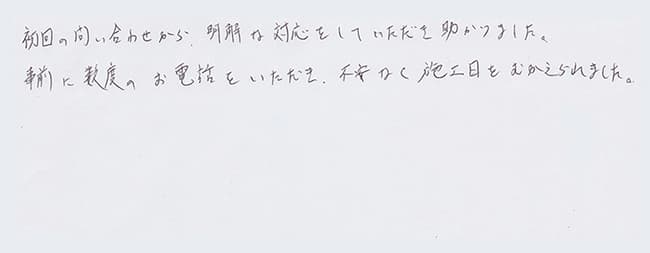 初回の問い合わせから、明解な対応をしていただき助かりました。
事前に数度のお電話をいただき、不安なく施工日をむかえられました。